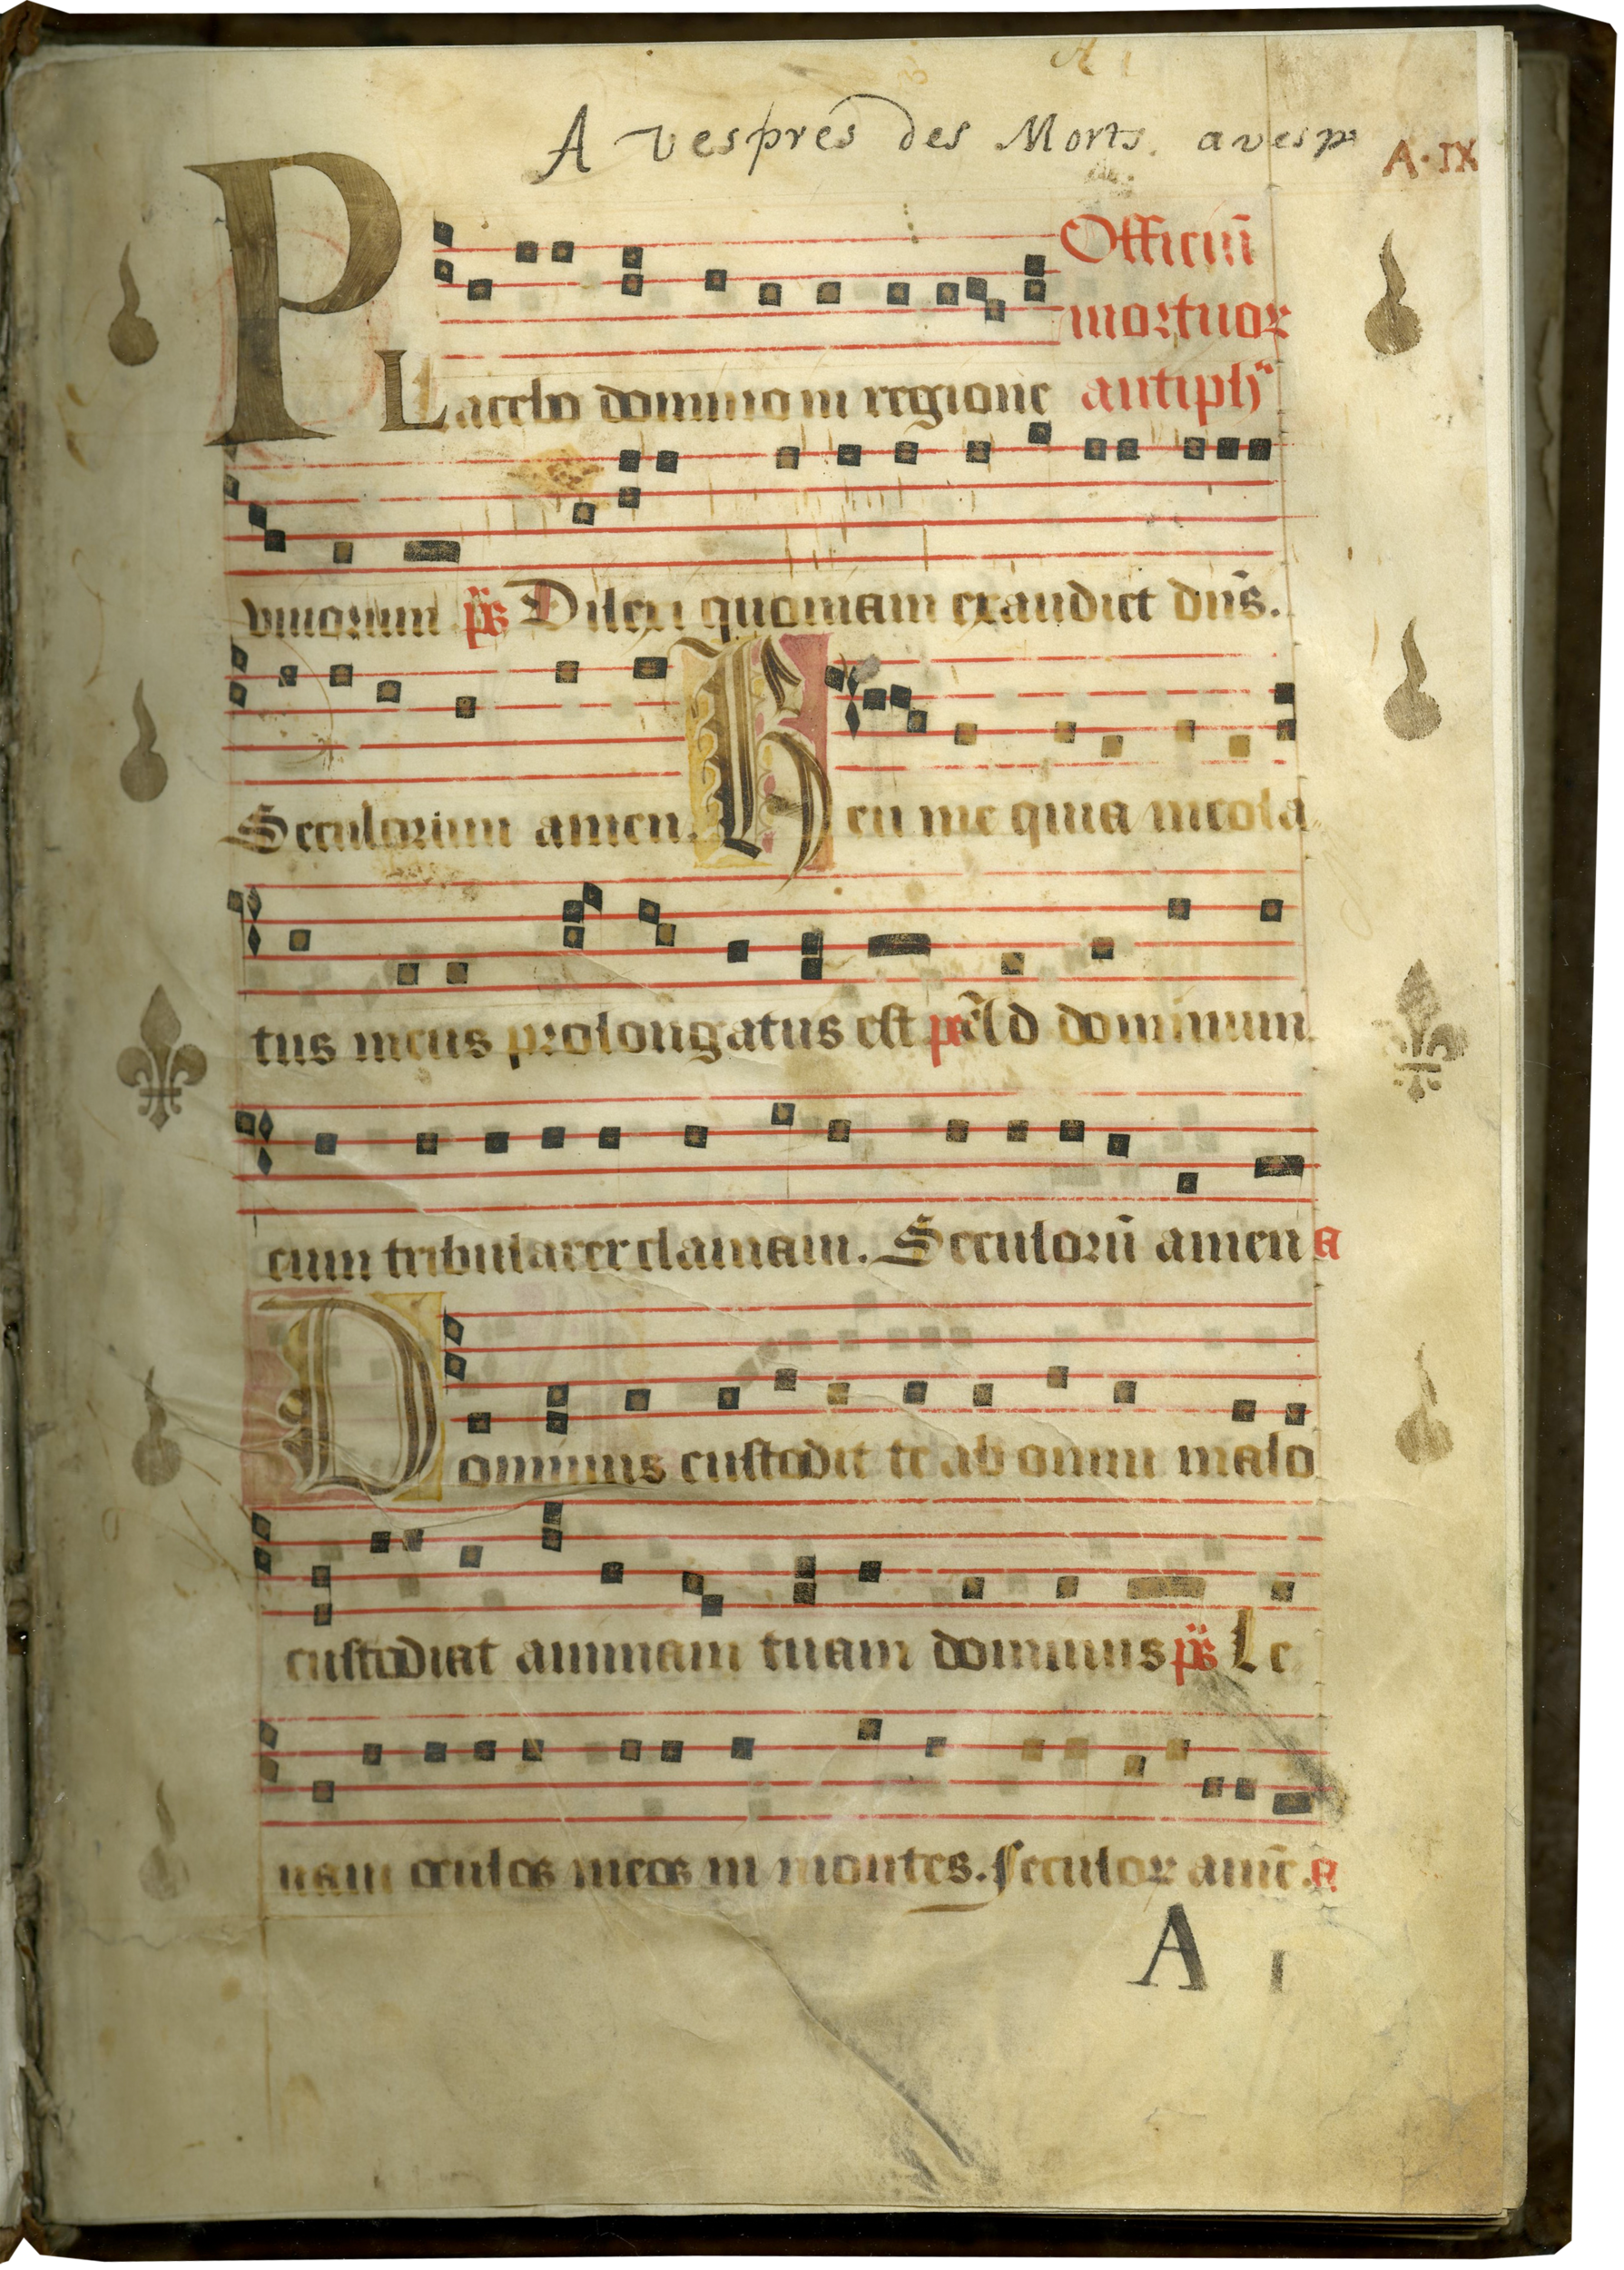 A vespres des Morts. avesp
A·IX
Officiũ
mortuor
PLacebo domino in regione antiph
vivorum ps Dilexi quoniam exaudiet dñs.
Seculorum amen. Heu me quia incola
tus meus prolongatus est ps Ad dominum
cum tribularer clamavi. Seculorũ amen a
Dominus custodit te ab omni malo
custodiat animam tuam dominus ps Le
vavi oculos meos in montes. seculor amẽ. a
A I